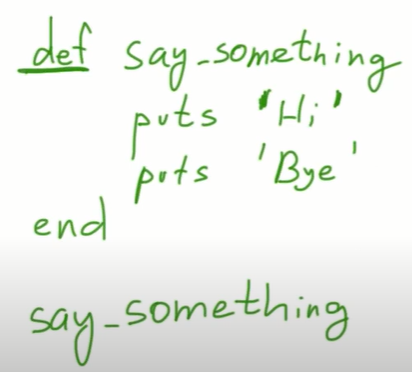 def say_something
puts 'Hi'
puts 'Bye'
end
say_something